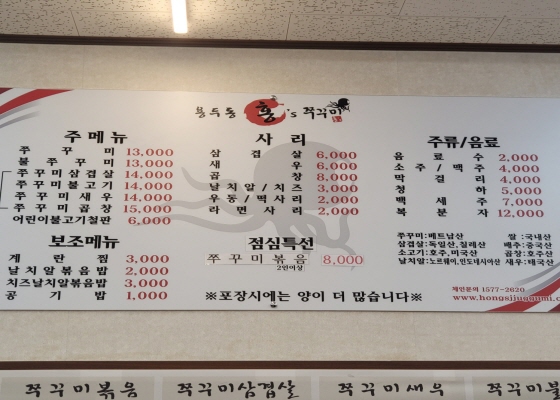 용두동 홍's 쭈꾸미
주메뉴
쭈꾸미 13,000
불쭈꾸미 13,000
쭈꾸미삼겹살 14,000
쭈꾸미불고기 14,000
쭈꾸미새우 14,000
쭈꾸미곱창 15,000
어린이불고기철판 6,000
보조메뉴
계란찜 3,000
날치알볶음밥 2,000
치즈날치알볶음밥 3,000
공기밥 1,000
사리
삼겹살 6,000
새우 6,000
곱창 8,000
날치알/치즈 3,000
우동/떡사리 2,000
라면사리 2,000
점심특선
쭈꾸미볶음 8,000
2인이상
※포장시에는 양이 더 많습니다※
주류/음료
음료수 2,000
소주/맥주 4,000
막걸리 4,000
청하 5,000
백세주 7,000
복분자 12,000
쭈꾸미:베트남산 쌀:국내산
삼겹살:독일산,칠레산 배추:중국산
소고기:호주,미국산 곱창:호주산
날치알:노르웨이,인도네시아산 새우:태국산
체인문의 1577-2620
www.hongsjjuggumi.c
쭈꾸미볶음
쭈꾸미삼겹살
쭈꾸미새우
쭈꾸미불